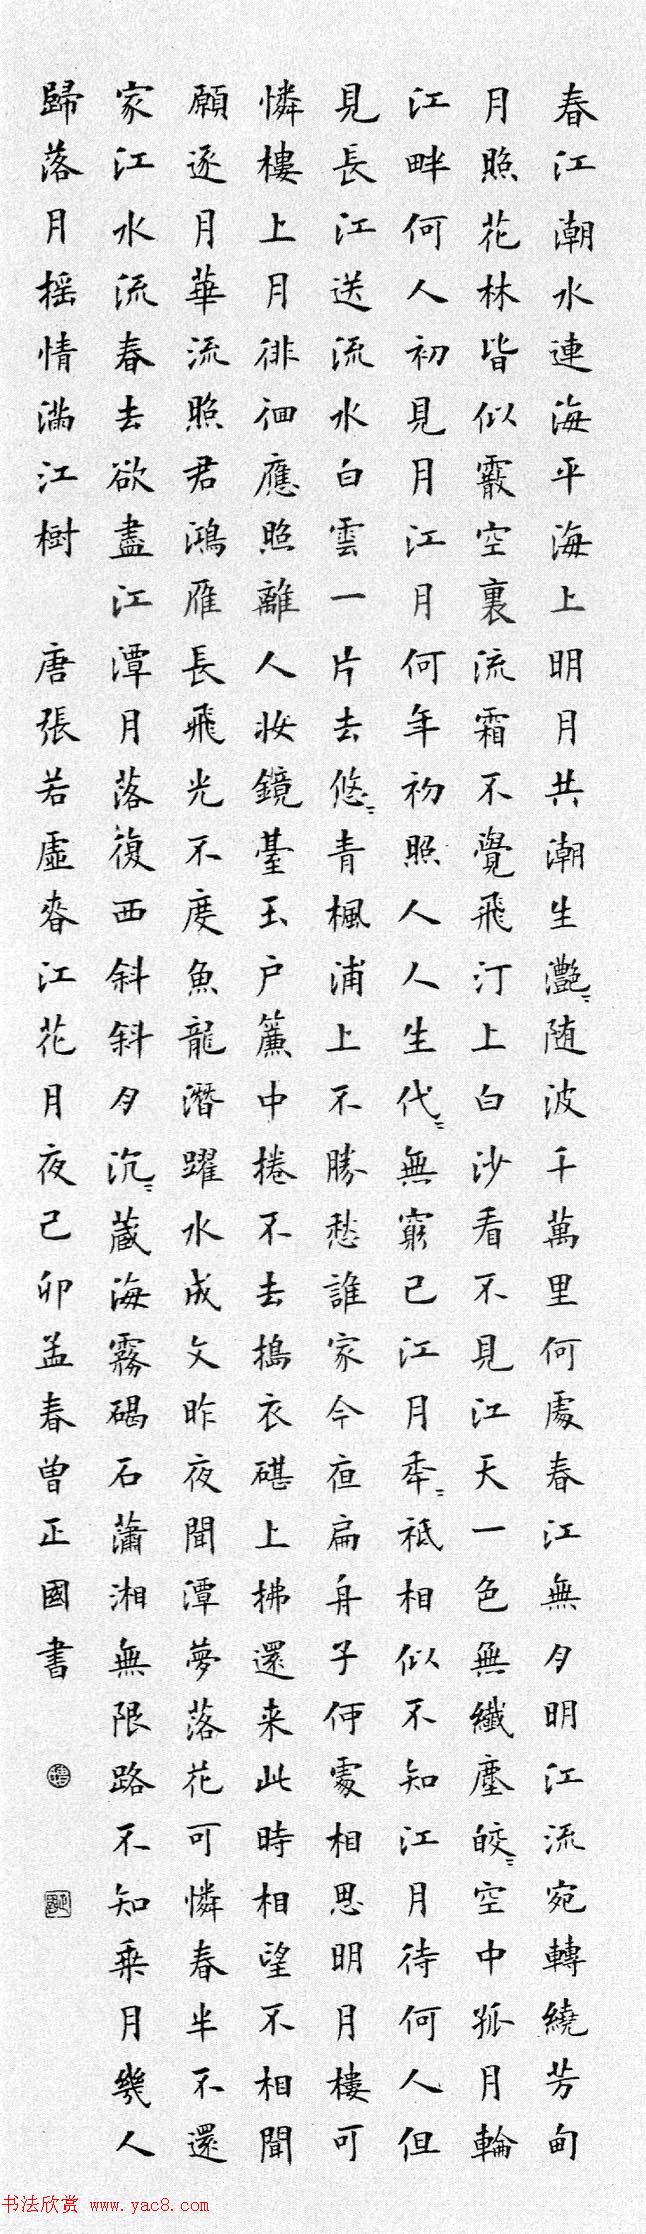 春江潮水連海平海上明月共潮生灧〻随波千萬里何處春江無月明江流宛轉繞芳甸
月照花林皆似霰空裏流霜不覺飛汀上白沙看不見江天一色無纖塵皎〻空中孤月輪
江畔何人初見月江月何年初照人人生代〻無窮已江月年〻祗相似不知江月待何人但
見長江送流水白雲一片去悠〻青楓浦上不勝愁誰家今夜扁舟子何處相思明月樓可
憐樓上月徘徊應照離人妝鏡臺玉户簾中捲不去搗衣碪上拂還来此時相望不相聞
願逐月華流照君鴻雁長飛光不度魚龍潛躍水成文昨夜聞潭夢落花可憐春半不還
家江水流春去欲盡江潭月落復西斜斜月沉〻藏海霧碣石瀟湘無限路不知乘月幾人
歸落月摇情滿江樹 唐張若虛春江花月夜己卯孟春曾正國書
书法欣赏 www.yac8.com